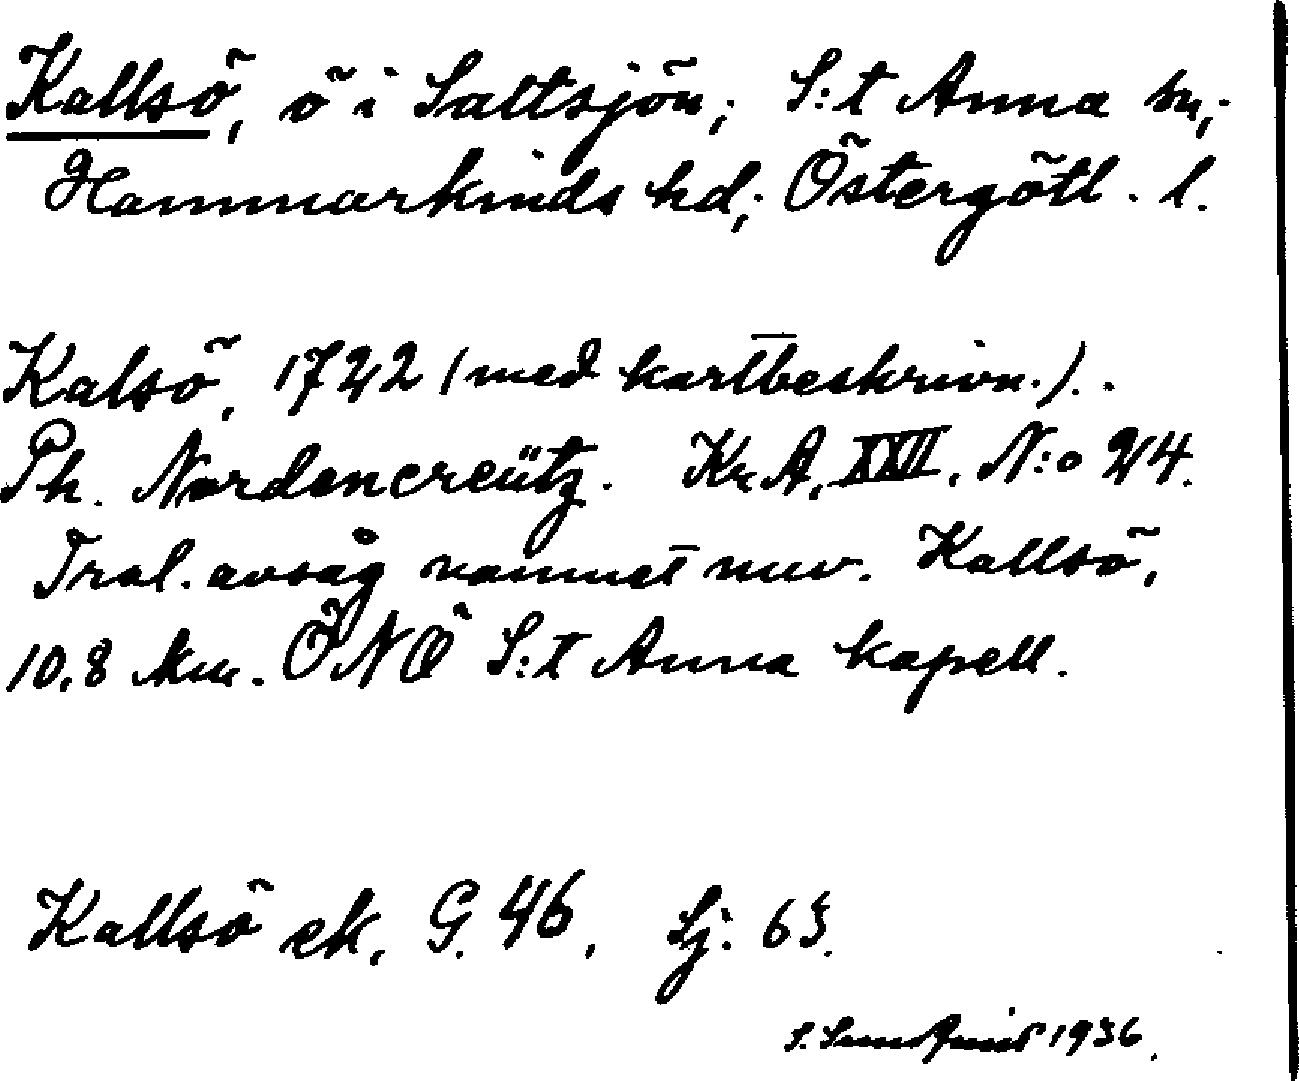 Kallsö, ö i Saltsjön; S:t Anna sn;
Hammarkinds hd; Östergötl. l.
Kalsö, 1722 (med kartbeskrivn.).
Ph. Nordencreütz. Kr.A. XXII. N:o 24.
Trol. avsåg namnet nuv. Kallsö,
10,8 km. ÖNÖ S:t Anna kapell.
Kallsö ek. G. 46. Sj: 63.
S. Sundquist 1936.